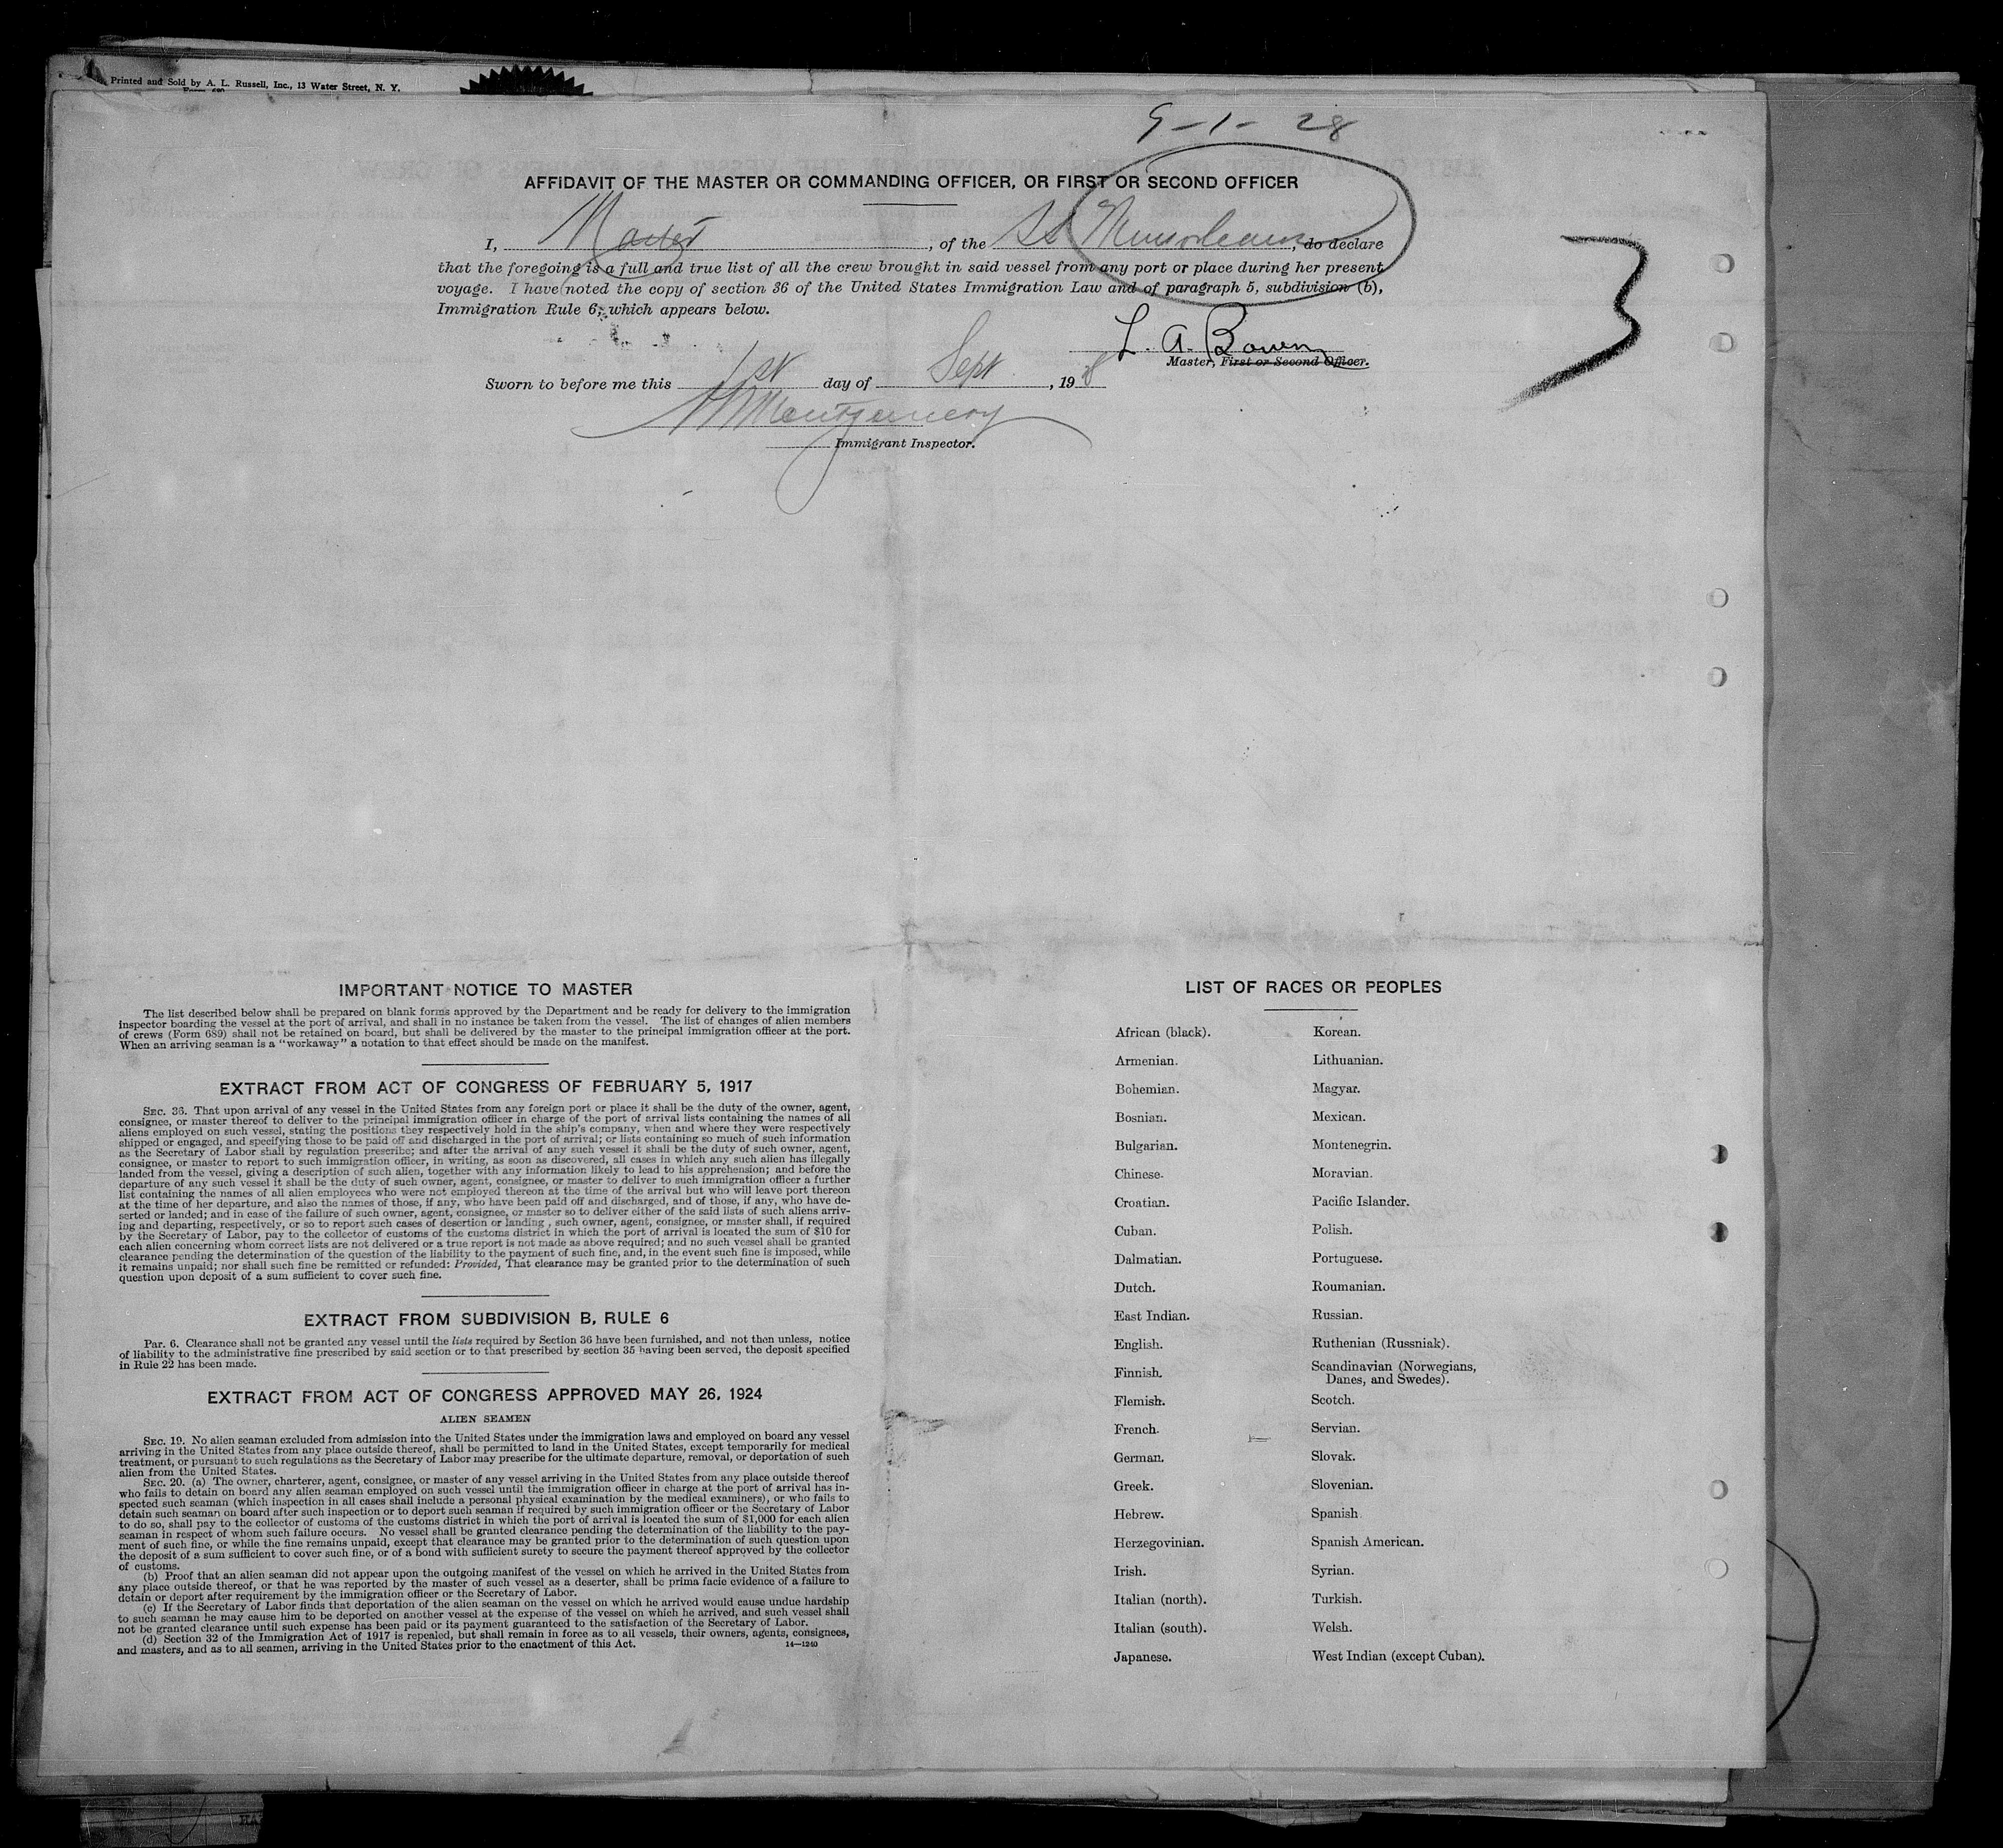 Printed and Sold by A. L. Russell, Inc., 13 Water Street, N. Y.
9-1-28
AFFIDAVIT OF THE MASTER OR COMMANDING OFFICER, OR FIRST OR SECOND OFFICER
I, Master, of the SS Munorleans, do declare
that the foregoing is a full and true list of all the crew brought in said vessel from any port or place during her present
voyage. I have noted the copy of section 36 of the United States Immigration Law and of paragraph 5, subdivision (b),
Immigration Rule 6, which appears below.
L. A. Bowen
Master, First or Second Officer.
3
Sworn to before me this 1st day of Sept, 1928
Montgomery
Immigrant Inspector.
IMPORTANT NOTICE TO MASTER
The list described below shall be prepared on blank forms approved by the Department and be ready for delivery to the immigration
inspector boarding the vessel at the port of arrival, and shall in no instance be taken from the vessel. The list of changes of alien members
of crews (Form 689) shall not be retained on board, but shall be delivered by the master to the principal immigration officer at the port.
When an arriving seaman is a "workaway" a notation to that effect should be made on the manifest.
EXTRACT FROM ACT OF CONGRESS OF FEBRUARY 5, 1917
SEC. 36. That upon arrival of any vessel in the United States from any foreign port or place it shall be the duty of the owner, agent,
consignee, or master thereof to deliver to the principal immigration officer in charge of the port of arrival lists containing the names of all
aliens employed on such vessel, stating the positions they respectively hold in the ship's company, when and where they were respectively
shipped or engaged, and specifying those to be paid off and discharged in the port of arrival; or lists containing so much of such information
as the Secretary of Labor shall by regulation prescribe; and after the arrival of any such vessel it shall be the duty of such owner, agent,
consignee, or master to report to such immigration officer, in writing, as soon as discovered, all cases in which any such alien has illegally
landed from the vessel, giving a description of such alien, together with any information likely to lead to his apprehension; and before the
departure of any such vessel it shall be the duty of such owner, agent, consignee, or master to deliver to such immigration officer a further
list containing the names of all alien employees who were not employed thereon at the time of the arrival but who will leave port thereon
at the time of her departure, and also the names of those, if any, who have been paid off and discharged, and of those, if any, who have de-
serted or landed; and in case of the failure of such owner, agent, consignee, or master so to deliver either of the said lists of such aliens arriv-
ing and departing, respectively, or so to report such cases of desertion or landing, such owner, agent, consignee, or master shall, if required
by the Secretary of Labor, pay to the collector of customs of the customs district in which the port of arrival is located the sum of $10 for
each alien concerning whom correct lists are not delivered or a true report is not made as above required; and no such vessel shall be granted
clearance pending the determination of the question of the liability to the payment of such fine, and, in the event such fine is imposed, while
it remains unpaid; nor shall such fine be remitted or refunded: Provided, That clearance may be granted prior to the determination of such
question upon deposit of a sum sufficient to cover such fine.
EXTRACT FROM SUBDIVISION B, RULE 6
Par. 6. Clearance shall not be granted any vessel until the lists required by Section 36 have been furnished, and not then unless, notice
of liability to the administrative fine prescribed by said section or to that prescribed by section 35 having been served, the deposit specified
in Rule 22 has been made.
EXTRACT FROM ACT OF CONGRESS APPROVED MAY 26, 1924
ALIEN SEAMEN
SEC. 19. No alien seaman excluded from admission into the United States under the immigration laws and employed on board any vessel
arriving in the United States from any place outside thereof, shall be permitted to land in the United States, except temporarily for medical
treatment, or pursuant to such regulations as the Secretary of Labor may prescribe for the ultimate departure, removal, or deportation of such
alien from the United States.
SEC. 20. (a) The owner, charterer, agent, consignee, or master of any vessel arriving in the United States from any place outside thereof
who fails to detain on board any alien seaman employed on such vessel until the immigration officer in charge at the port of arrival has in-
spected such seaman (which inspection in all cases shall include a personal physical examination by the medical examiners), or who fails to
detain such seaman on board after such inspection or to deport such seaman if required by such immigration officer or the Secretary of Labor
to do so, shall pay to the collector of customs of the customs district in which the port of arrival is located the sum of $1,000 for each alien
seaman in respect of whom such failure occurs. No vessel shall be granted clearance pending the determination of the liability to the pay-
ment of such fine, or while the fine remains unpaid, except that clearance may be granted prior to the determination of such question upon
the deposit of a sum sufficient to cover such fine, or of a bond with sufficient surety to secure the payment thereof approved by the collector
of customs.
(b) Proof that an alien seaman did not appear upon the outgoing manifest of the vessel on which he arrived in the United States from
any place outside thereof, or that he was reported by the master of such vessel as a deserter, shall be prima facie evidence of a failure to
detain or deport after requirement by the immigration officer or the Secretary of Labor.
(c) If the Secretary of Labor finds that deportation of the alien seaman on the vessel on which he arrived would cause undue hardship
to such seaman he may cause him to be deported on another vessel at the expense of the vessel on which he arrived, and such vessel shall
not be granted clearance until such expense has been paid or its payment guaranteed to the satisfaction of the Secretary of Labor.
(d) Section 32 of the Immigration Act of 1917 is repealed, but shall remain in force as to all vessels, their owners, agents, consignees,
and masters, and as to all seamen, arriving in the United States prior to the enactment of this Act.
14—1240
LIST OF RACES OR PEOPLES
African (black).
Armenian.
Bohemian.
Bosnian.
Bulgarian.
Chinese.
Croatian.
Cuban.
Dalmatian.
Dutch.
East Indian.
English.
Finnish.
Flemish.
French.
German.
Greek.
Hebrew.
Herzegovinian.
Irish.
Italian (north).
Italian (south).
Japanese.
Korean.
Lithuanian.
Magyar.
Mexican.
Montenegrin.
Moravian.
Pacific Islander.
Polish.
Portuguese.
Roumanian.
Russian.
Ruthenian (Russniak).
Scandinavian (Norwegians,
Danes, and Swedes).
Scotch.
Servian.
Slovak.
Slovenian.
Spanish
Spanish American.
Syrian.
Turkish.
Welsh.
West Indian (except Cuban).